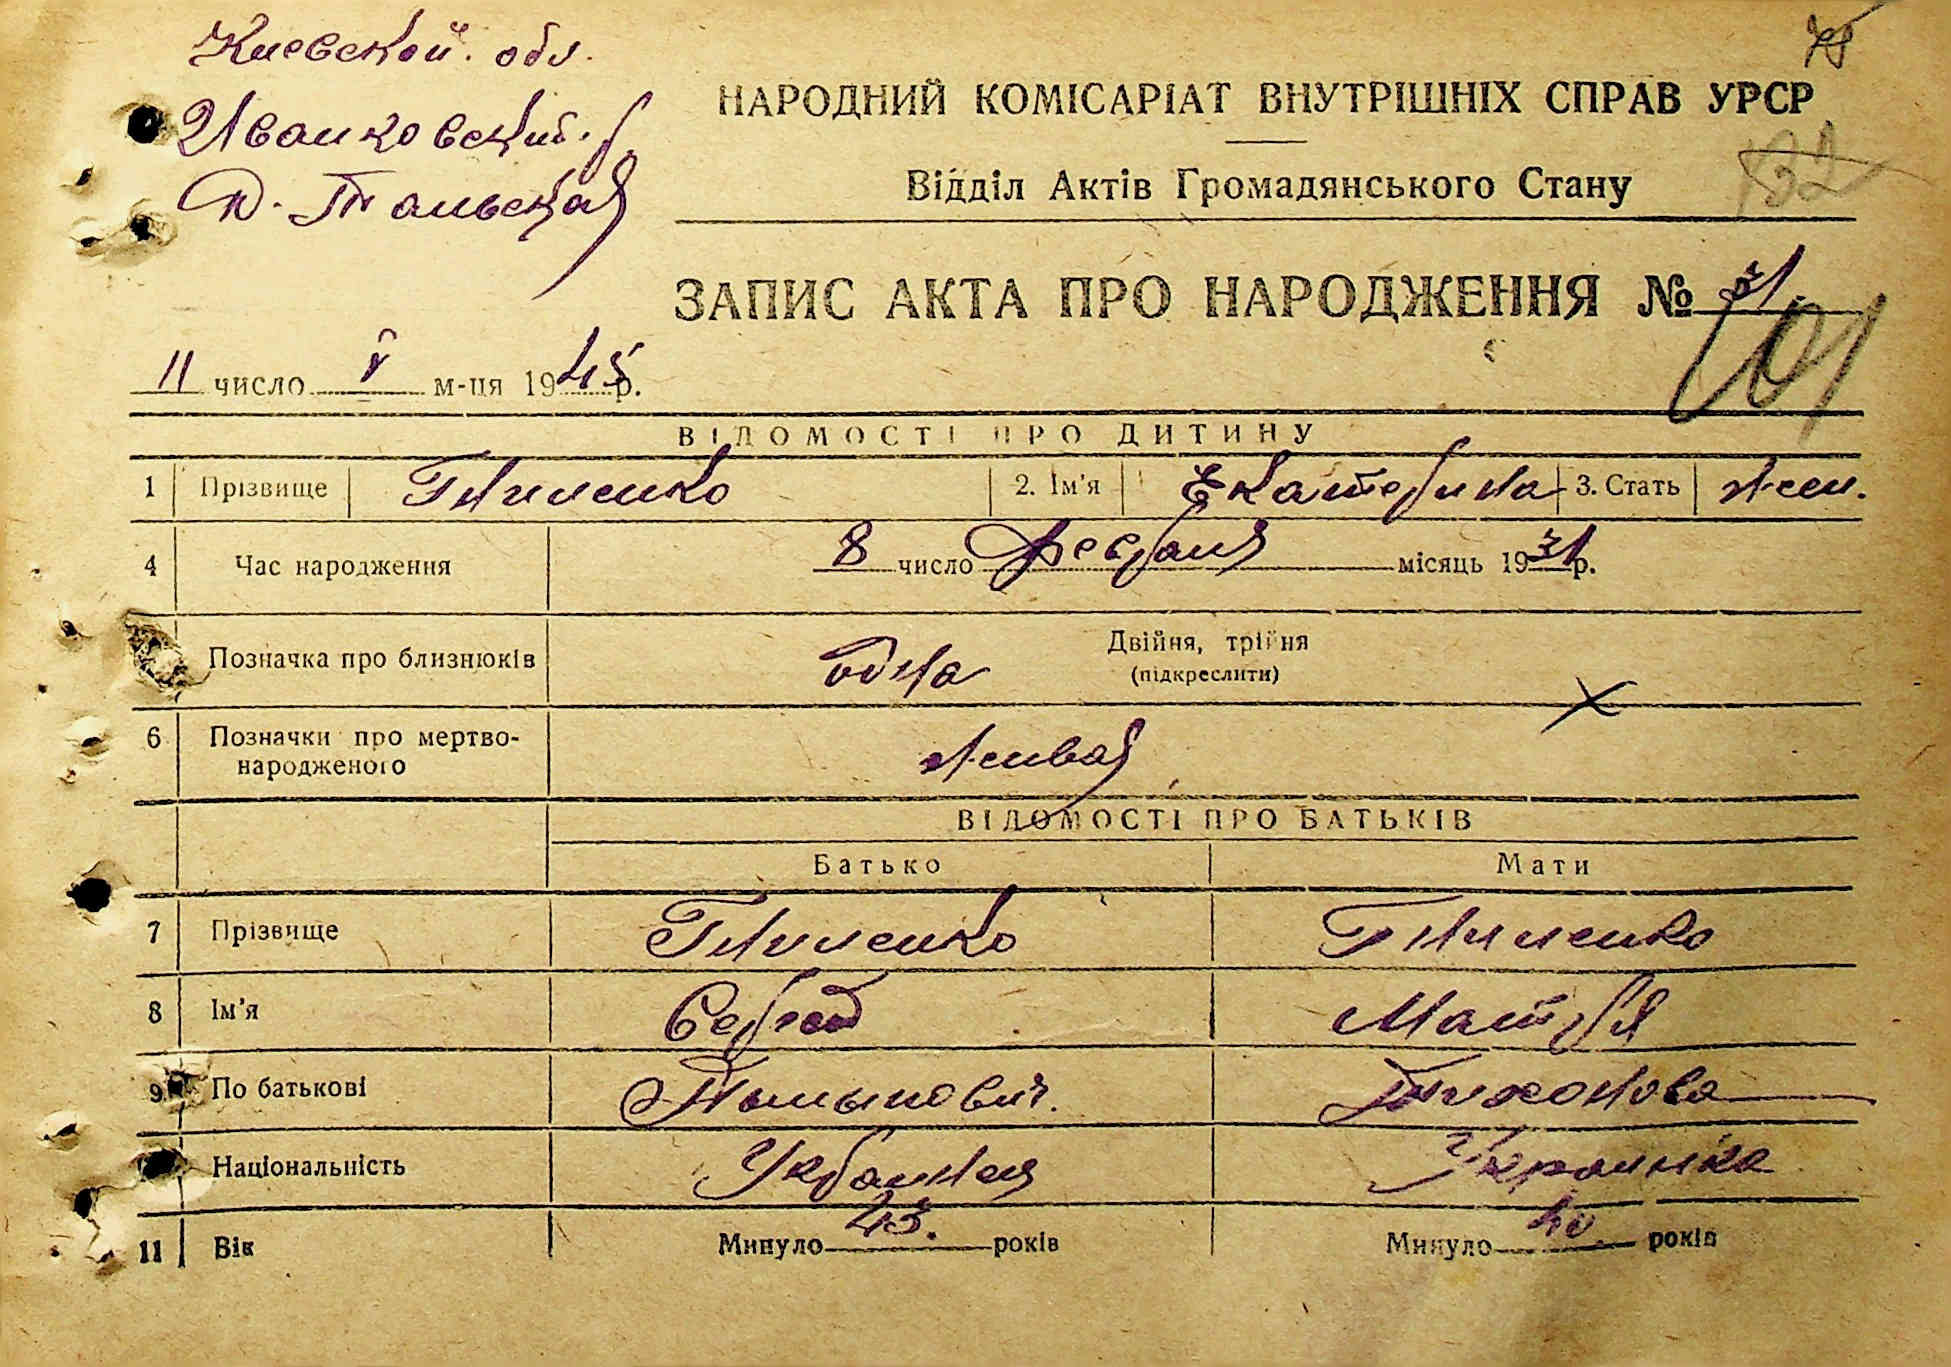 Киевской обл.
Иванковский р.
д. Тальская
НАРОДНИЙ КОМІСАРІАТ ВНУТРІШНІХ СПРАВ УРСР
Відділ Актів Громадянського Стану
ЗАПИС АКТА ПРО НАРОДЖЕННЯ № 31.
101
11 число V м-ця 1945 р.
ВІДОМОСТІ ПРО ДИТИНУ
1 Прізвище Гниленко 2. Ім'я Екатерина 3. Стать жен.
4 Час народження 8 число февраля місяць 1931 р.
Позначка про близнюків одна Двійня, трійня
(підкреслити)
6 Позначки про мертво-
народженого живая
ВІДОМОСТІ ПРО БАТЬКІВ
Батько Мати
7 Прізвище Гниленко Гниленко
8 Ім'я Сергей
9 По батькові Тихонова
Національність Украинец Украинка
11 Вік Минуло 43. років Минуло 40. років